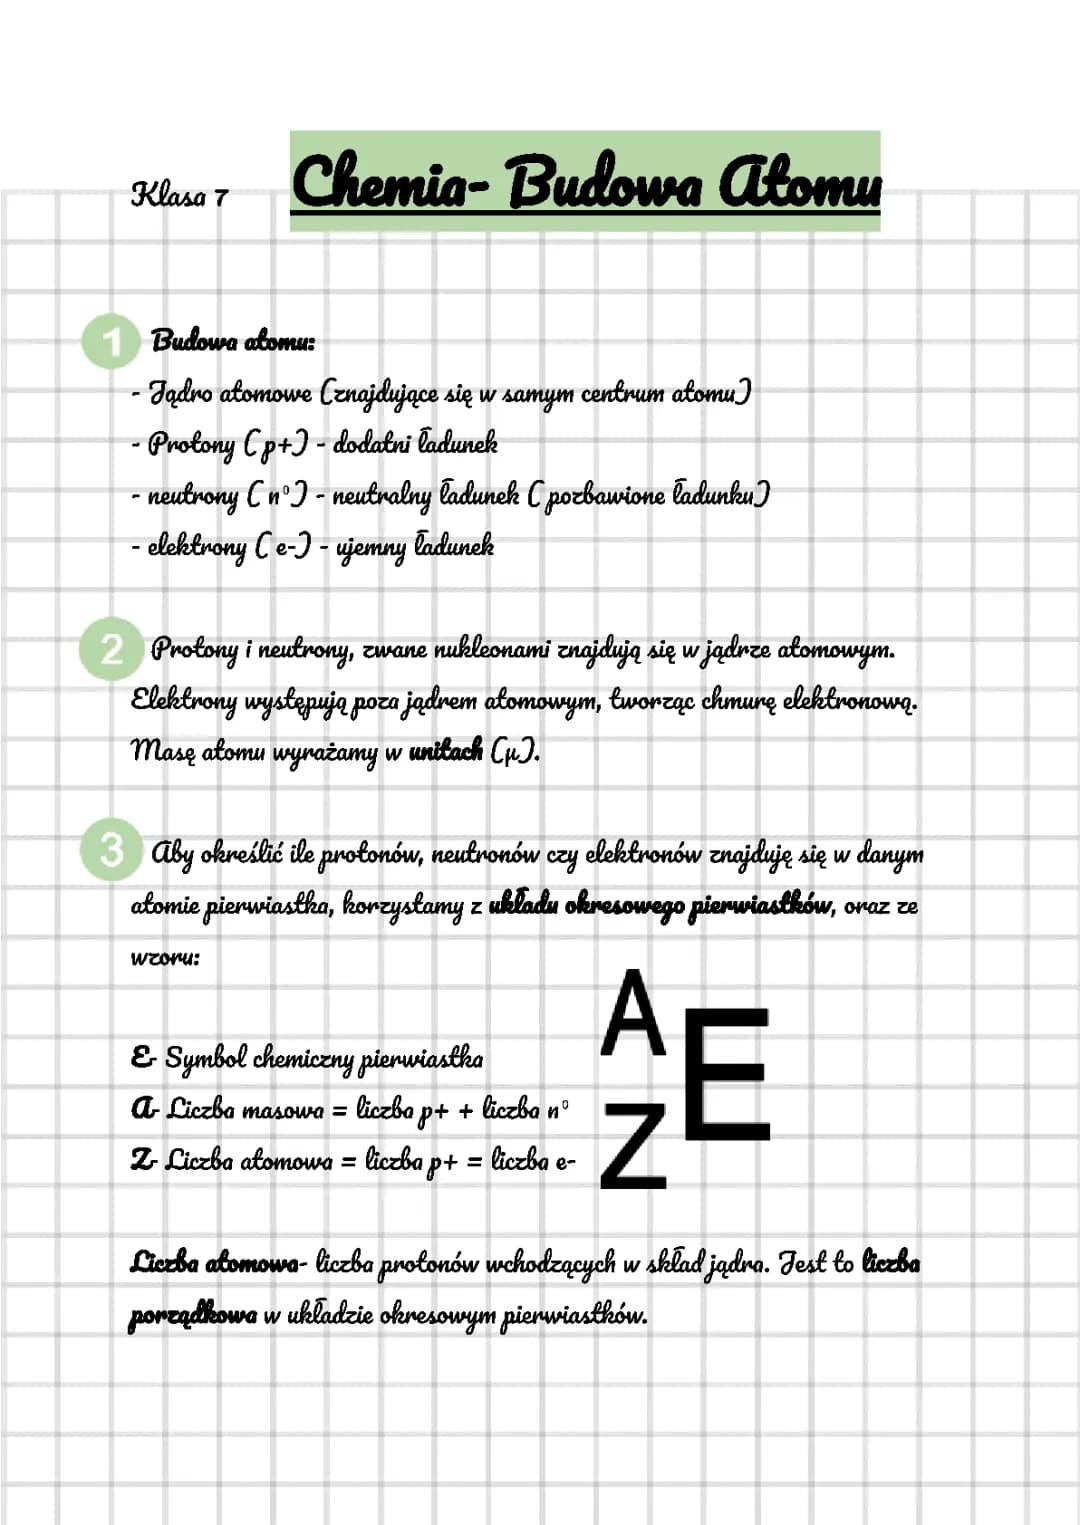 Klasa 7
Chemia- Budowa Atomu
1 Budowa atomu:
- Jądro atomowe (znajdujące się w samym centrum atomu)
- Protony (p+) - dodatni ładunek
- neutrony (n°) - neutralny ładunek (pozbawione ładunku)
- elektrony (e-) - ujemny ładunek
2 Protony i neutrony, zwane nukleonami znajdują się w jądrze atomowym.
Elektrony występują poza jądrem atomowym, tworząc chmurę elektronową.
Masę atomu wyrażamy w unitach (μ).
3 Aby określić ile protonów, neutronów czy elektronów znajduję się w danym
atomie pierwiastka, korzystamy z układu okresowego pierwiastków, oraz ze
wzoru:
A
E
Z
E- Symbol chemiczny pierwiastka
A- Liczba masowa = liczba p+ + liczba n°
Z- Liczba atomowa = liczba p+ = liczba e-
Liczba atomowa- liczba protonów wchodzących w skład jądra. Jest to liczba
porządkowa w układzie okresowym pierwiastków.